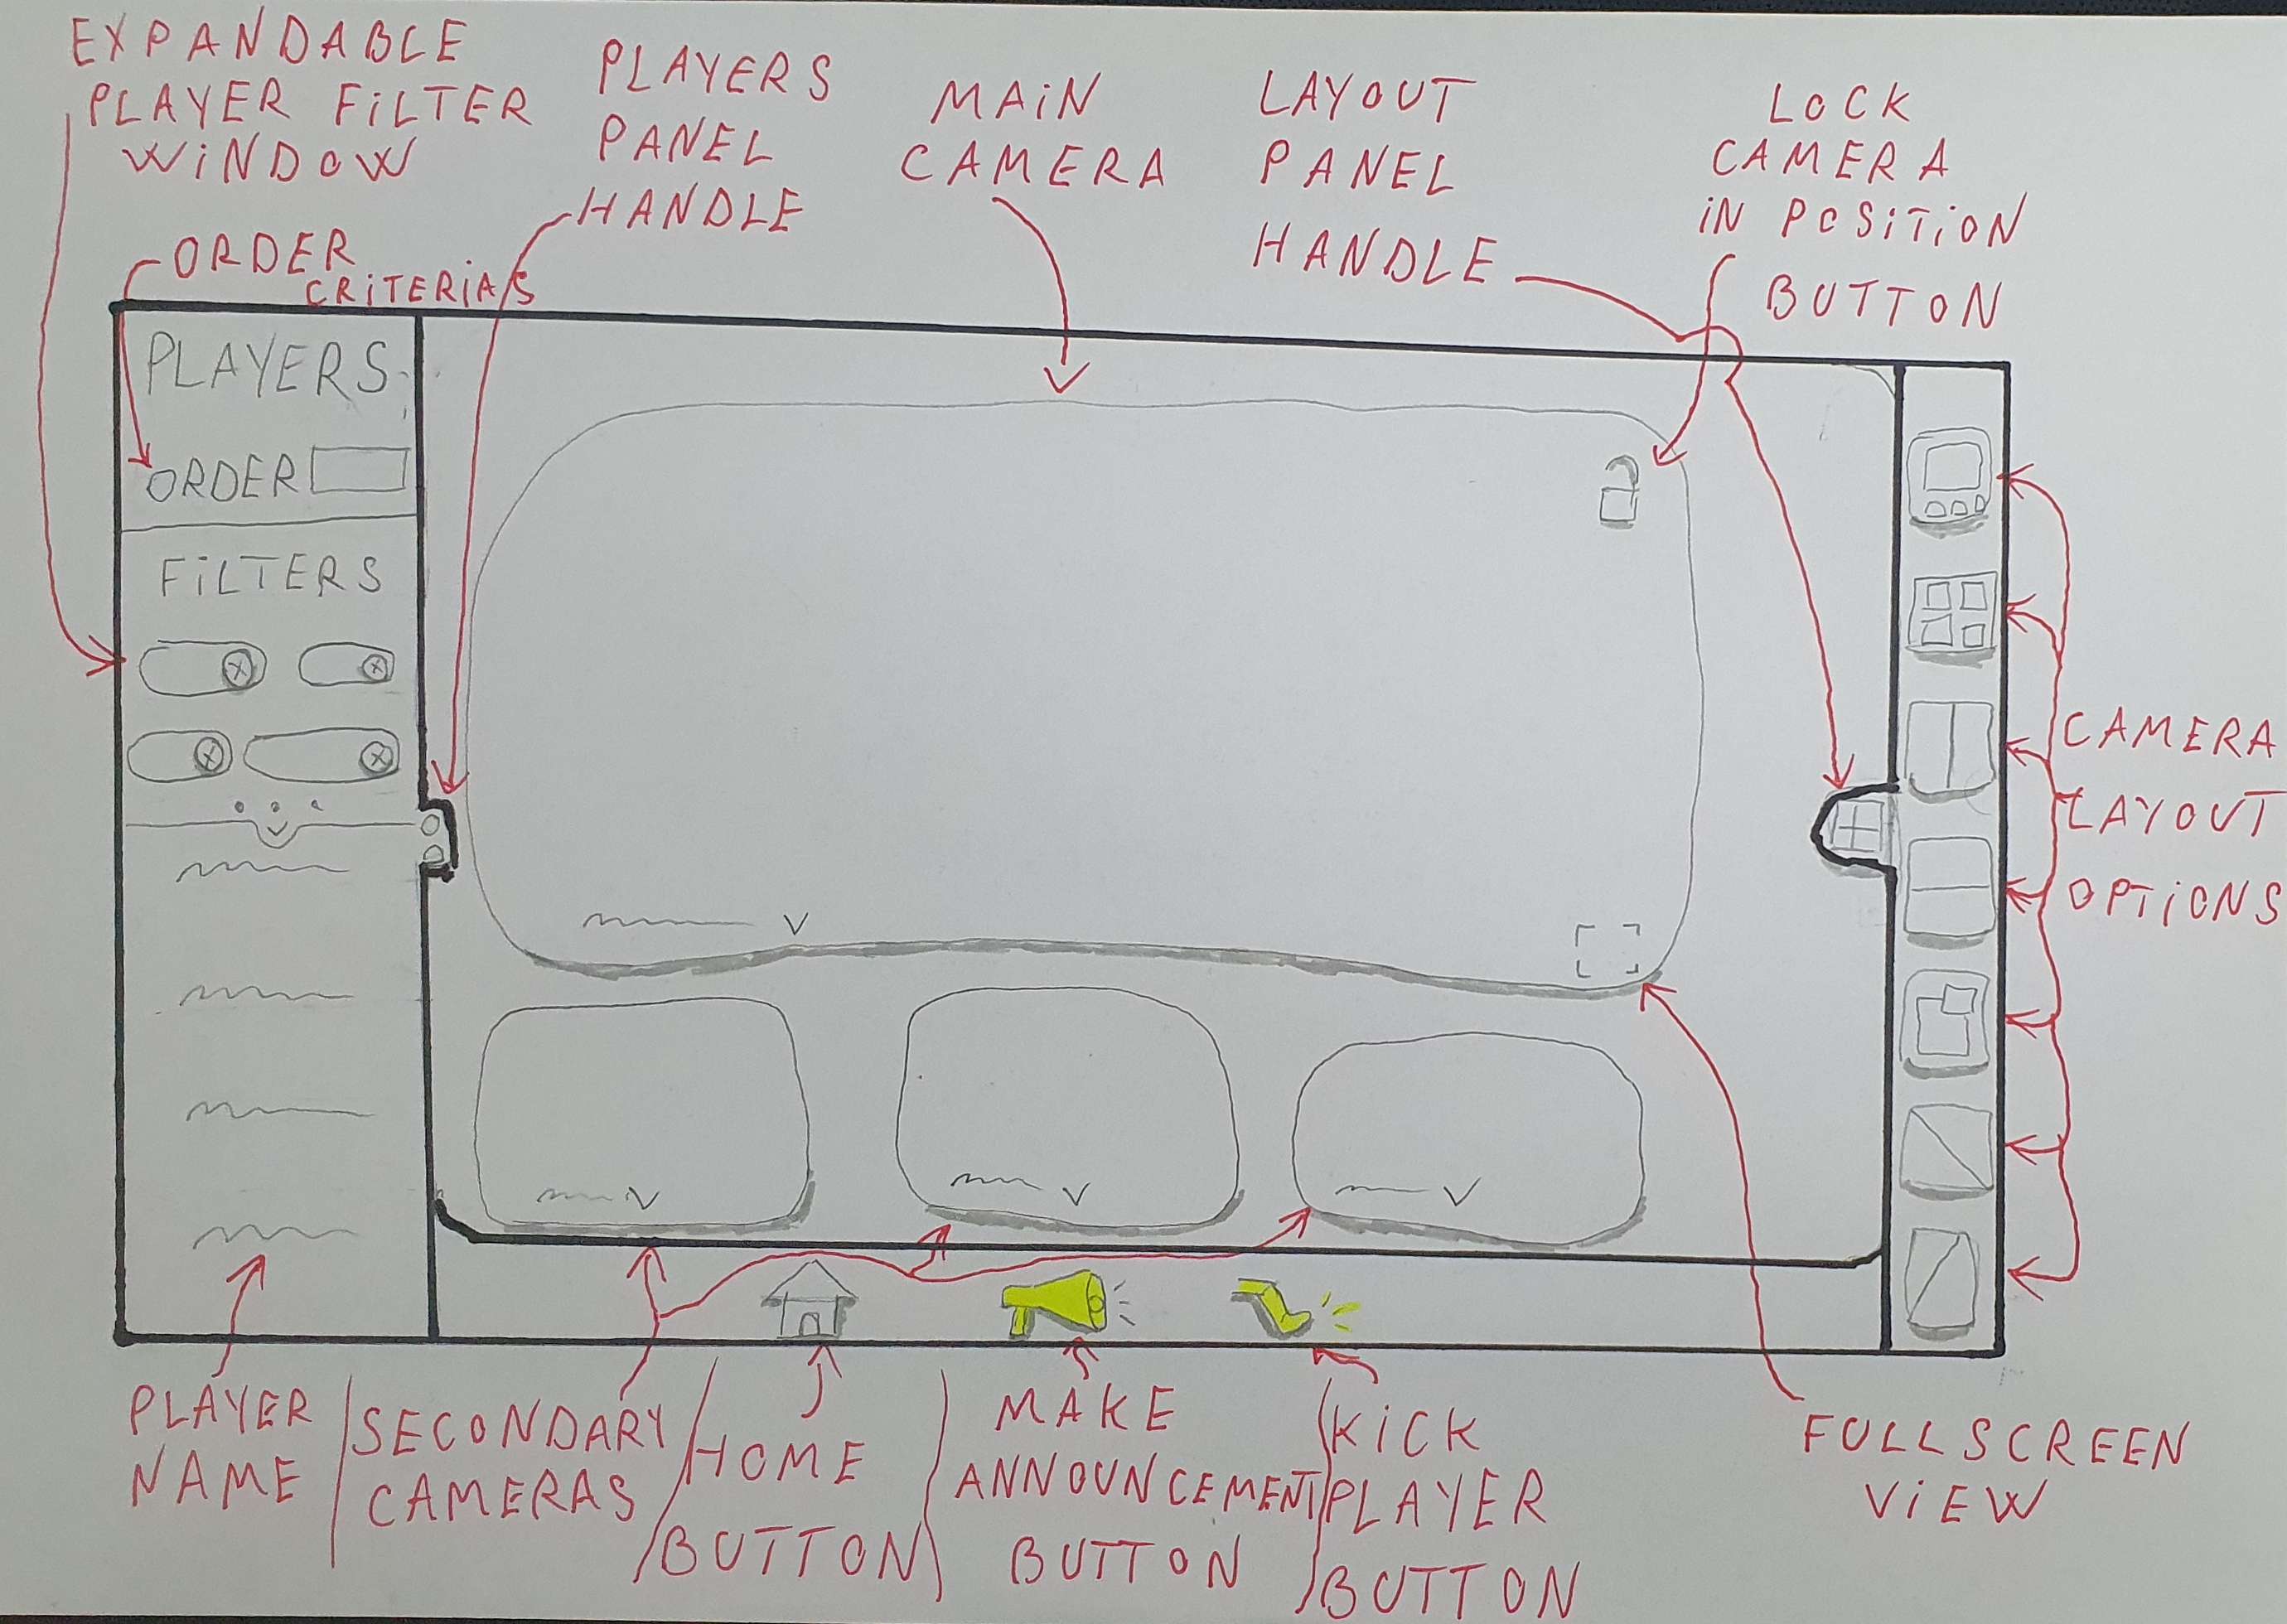 EXPANDABLE
PLAYER FILTER
WINDOW
ORDER
CRITERIAS
PLAYERS
PANEL
HANDLE
MAIN
CAMERA
LAYOUT
PANEL
HANDLE
LOCK
CAMERA
IN POSITION
BUTTON
PLAYERS
ORDER
FILTERS
CAMERA
LAYOUT
OPTIONS
PLAYER
NAME
SECONDARY
CAMERAS
HOME
BUTTON
MAKE
ANNOUNCEMENT
BUTTON
KICK
PLAYER
BUTTON
FULLSCREEN
VIEW